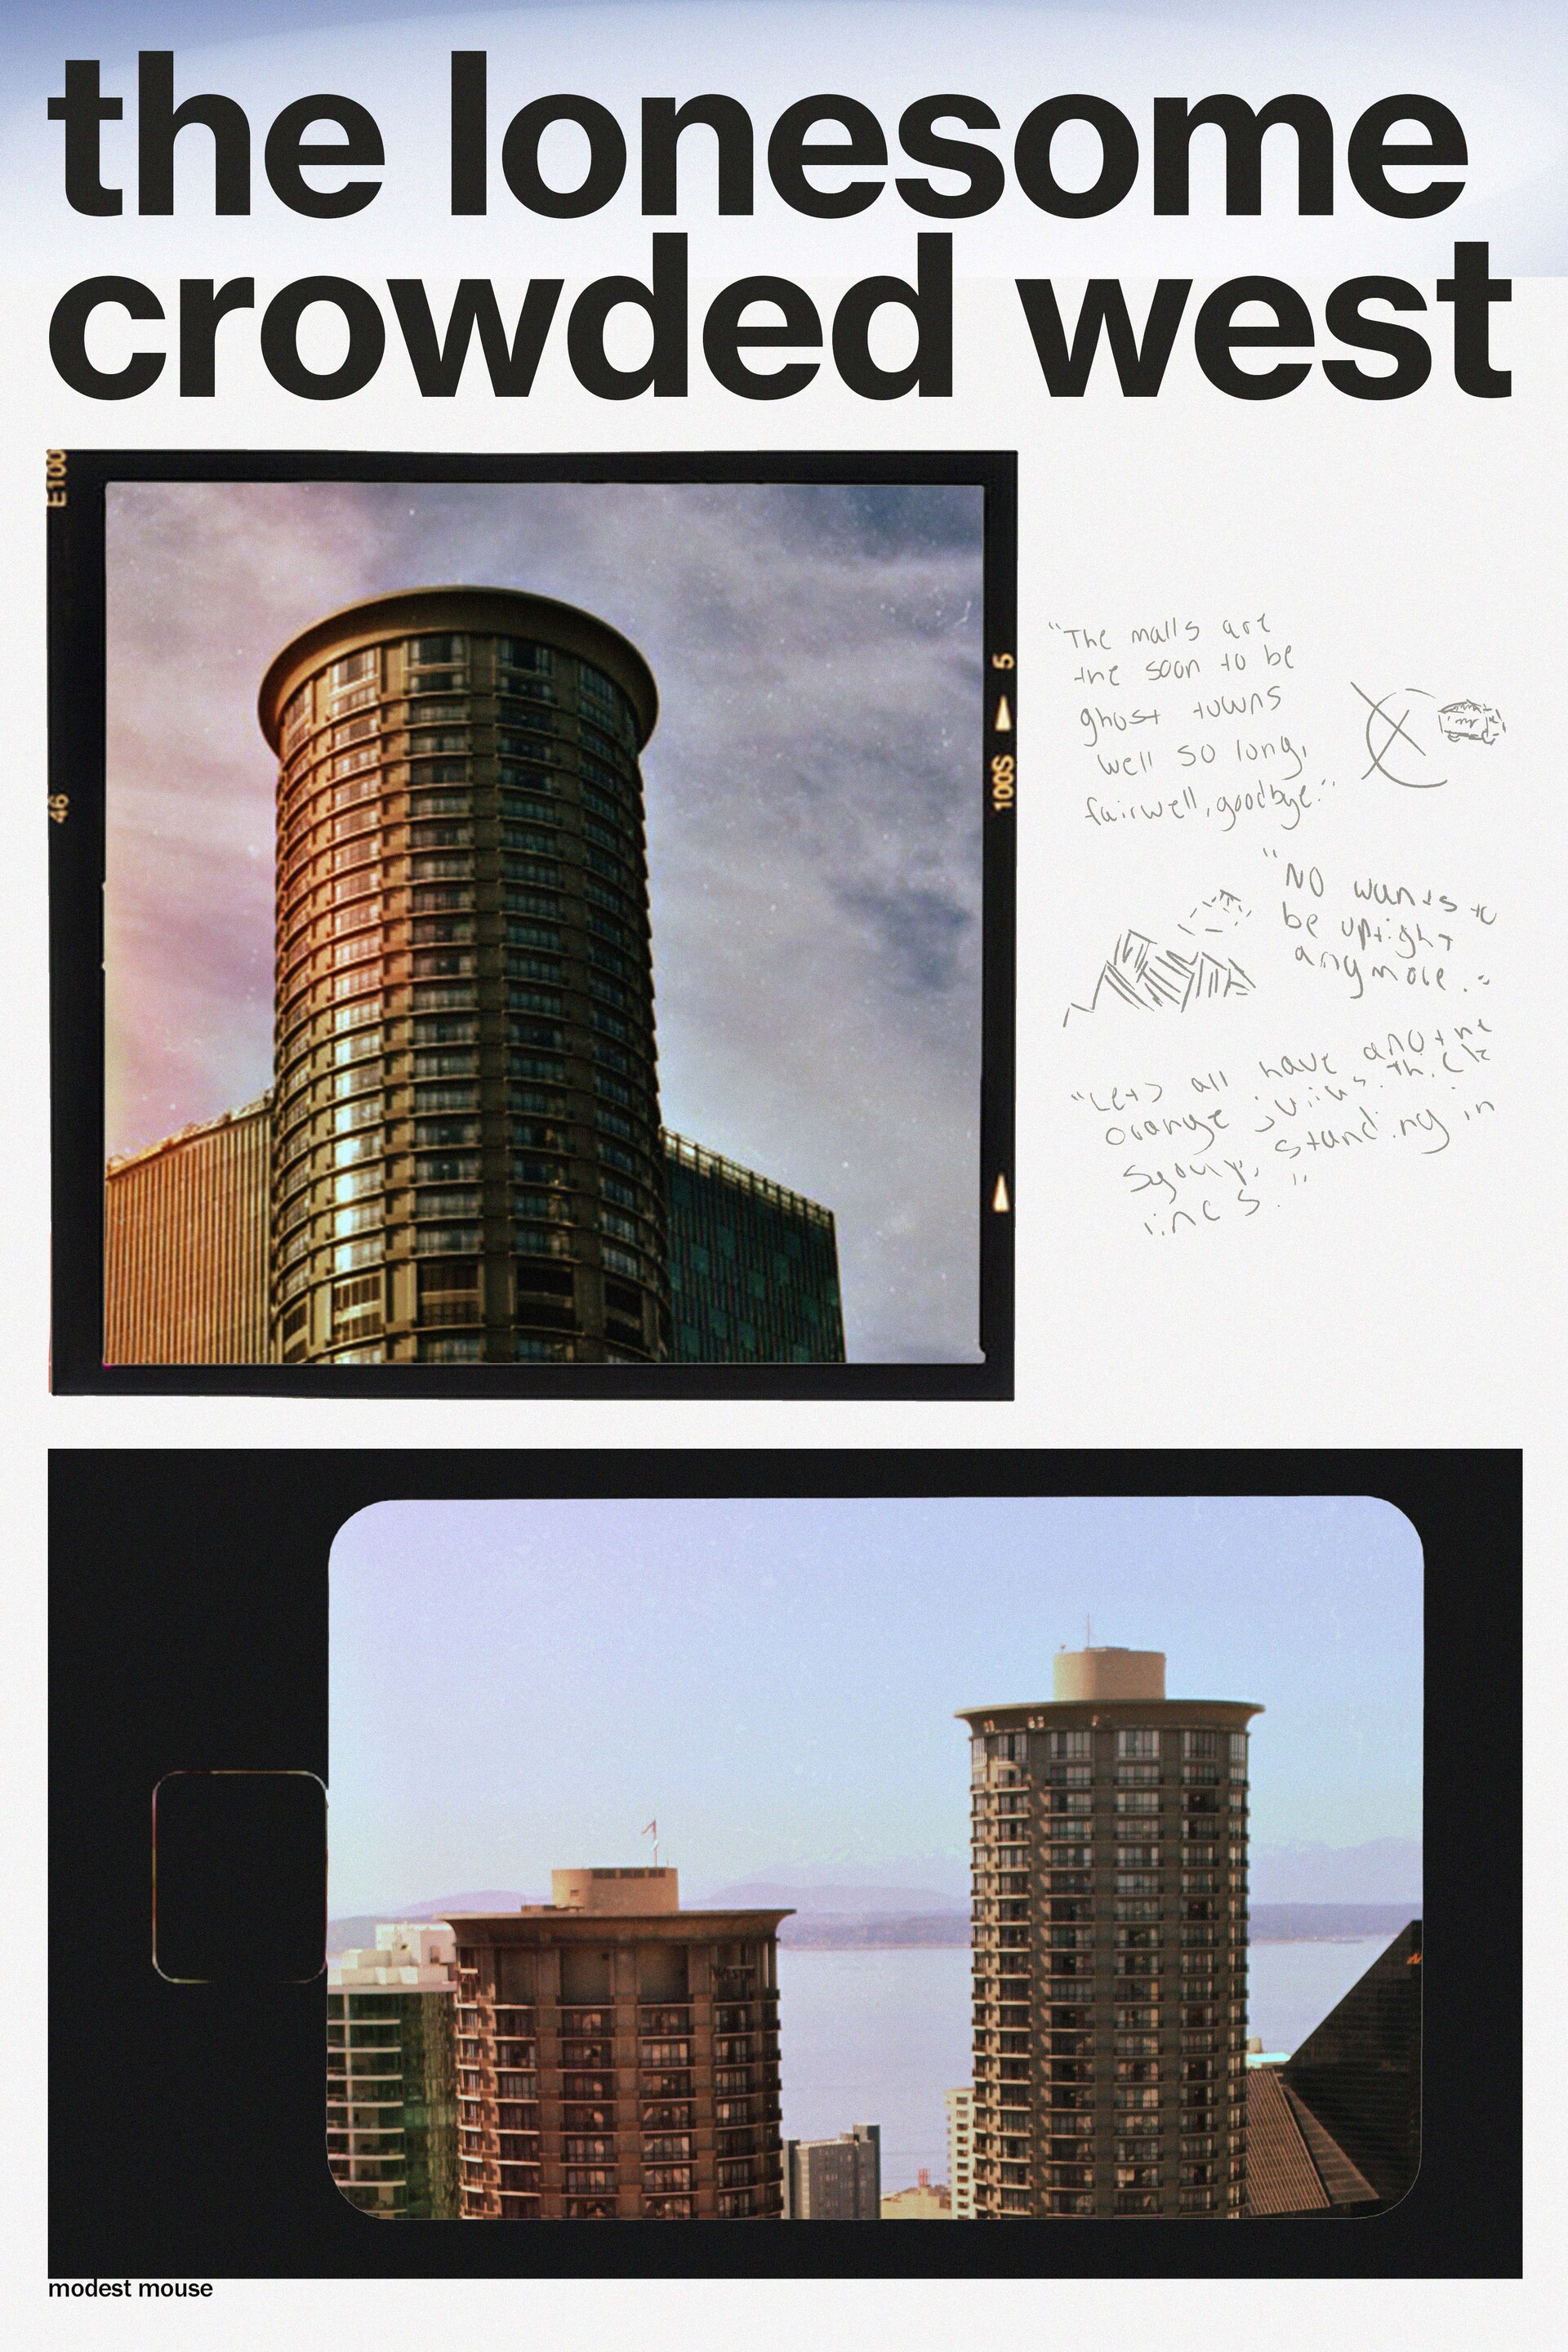 the lonesome
crowded west
E100
46
5
100S
"The malls are
the soon to be
ghost towns
well so long,
fairwell, goodbye."
"NO wants to
be uptight
anymore."
"Lets all have anothe
orange juiius. thick
syoup, standing in
lines."
Westin
modest mouse